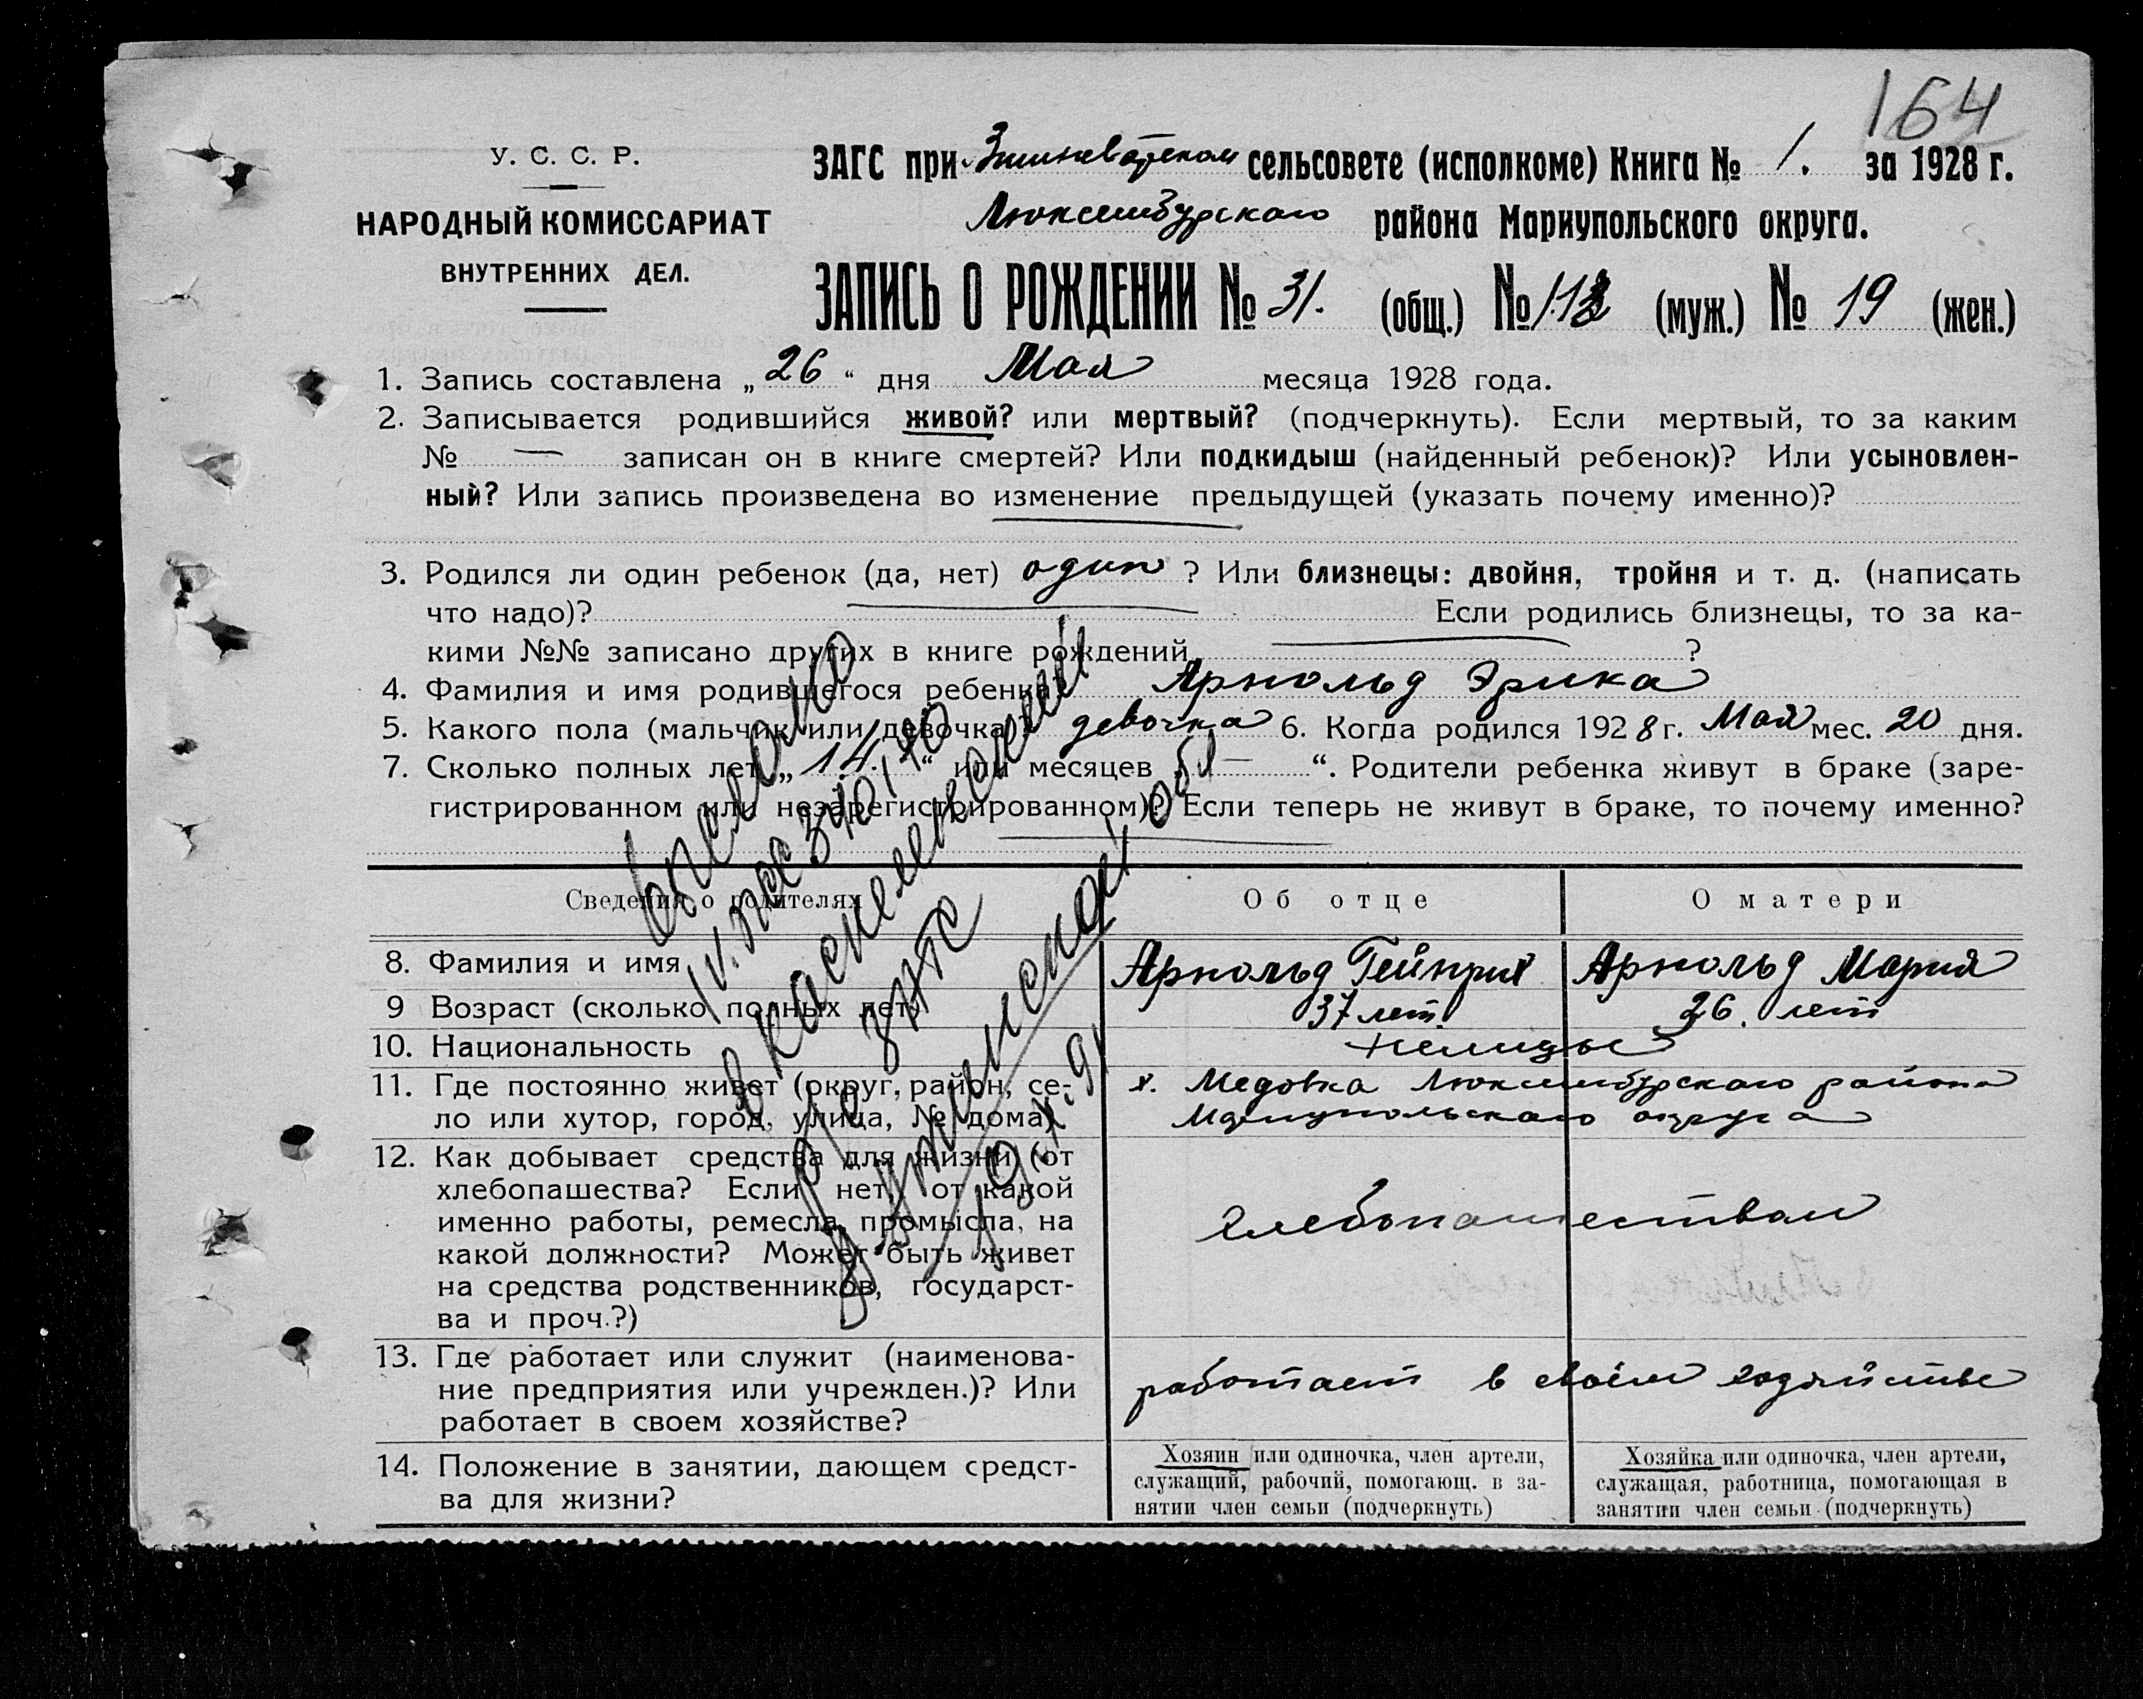 164
У. С. С. Р.
НАРОДНЫЙ КОМИССАРИАТ
ВНУТРЕННИХ ДЕЛ.
ЗАГС при сельсовете (исполкоме) Книга № 1. за 1928 г.
Люксембургского района Мариупольского округа.
ЗАПИСЬ О РОЖДЕНИИ № 31. (общ.) № (муж.) № 19 (жен.)
1. Запись составлена „ 26 “ дня Мая месяца 1928 года.
2. Записывается родившийся живой? или мертвый? (подчеркнуть). Если мертвый, то за каким
№ — записан он в книге смертей? Или подкидыш (найденный ребенок)? Или усыновлен-
ный? Или запись произведена во изменение предыдущей (указать почему именно)?
3. Родился ли один ребенок (да, нет) один ? Или близнецы: двойня, тройня и т. д. (написать
что надо)? Если родились близнецы, то за ка-
кими №№ записано других в книге рождений ?
4. Фамилия и имя родившегося ребенка? Арнольд Эрика
5. Какого пола (мальчик или девочка)? девочка 6. Когда родился 1928 г. Мая мес. 20 дня.
7. Сколько полных лет „ 14. “ или месяцев „ — “. Родители ребенка живут в браке (заре-
гистрированном или незарегистрированном)? Если теперь не живут в браке, то почему именно?
Сведения о родителях Об отце О матери
8. Фамилия и имя Арнольд Гейнрих Арнольд Мария
9 Возраст (сколько полных лет) 37 лет. 26. лет
10. Национальность немцы
11. Где постоянно живет (округ, район, се-
ло или хутор, город, улица, № дома)
х. Медовка Люксембургского района
Мариупольского округа
12. Как добывает средства для жизни (от
хлебопашества? Если нет, от какой
именно работы, ремесла, промысла, на
какой должности? Может быть живет
на средства родственников, государст-
ва и проч.?)
хлебопашеством
13. Где работает или служит (наименова-
ние предприятия или учрежден.)? Или
работает в своем хозяйстве?
работает в своём хозяйстве
14. Положение в занятии, дающем средст-
ва для жизни?
Хозяин или одиночка, член артели,
служащий, рабочий, помогающ. в за-
нятии член семьи (подчеркнуть)
Хозяйка или одиночка, член артели,
служащая, работница, помогающая в
занятии член семьи (подчеркнуть)
выслано
в Каскеленский
ЗАГС